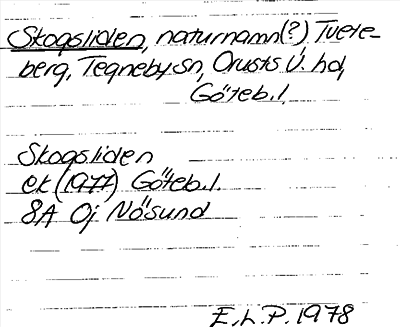 Skogsliden, naturnamn(?) Tvete-
berg, Tegneby sn, Orusts V. hd,
Göteb.l.
Skogsliden
ek (1977) Göteb.l.
8A Oj Nösund
E.L.P. 1978